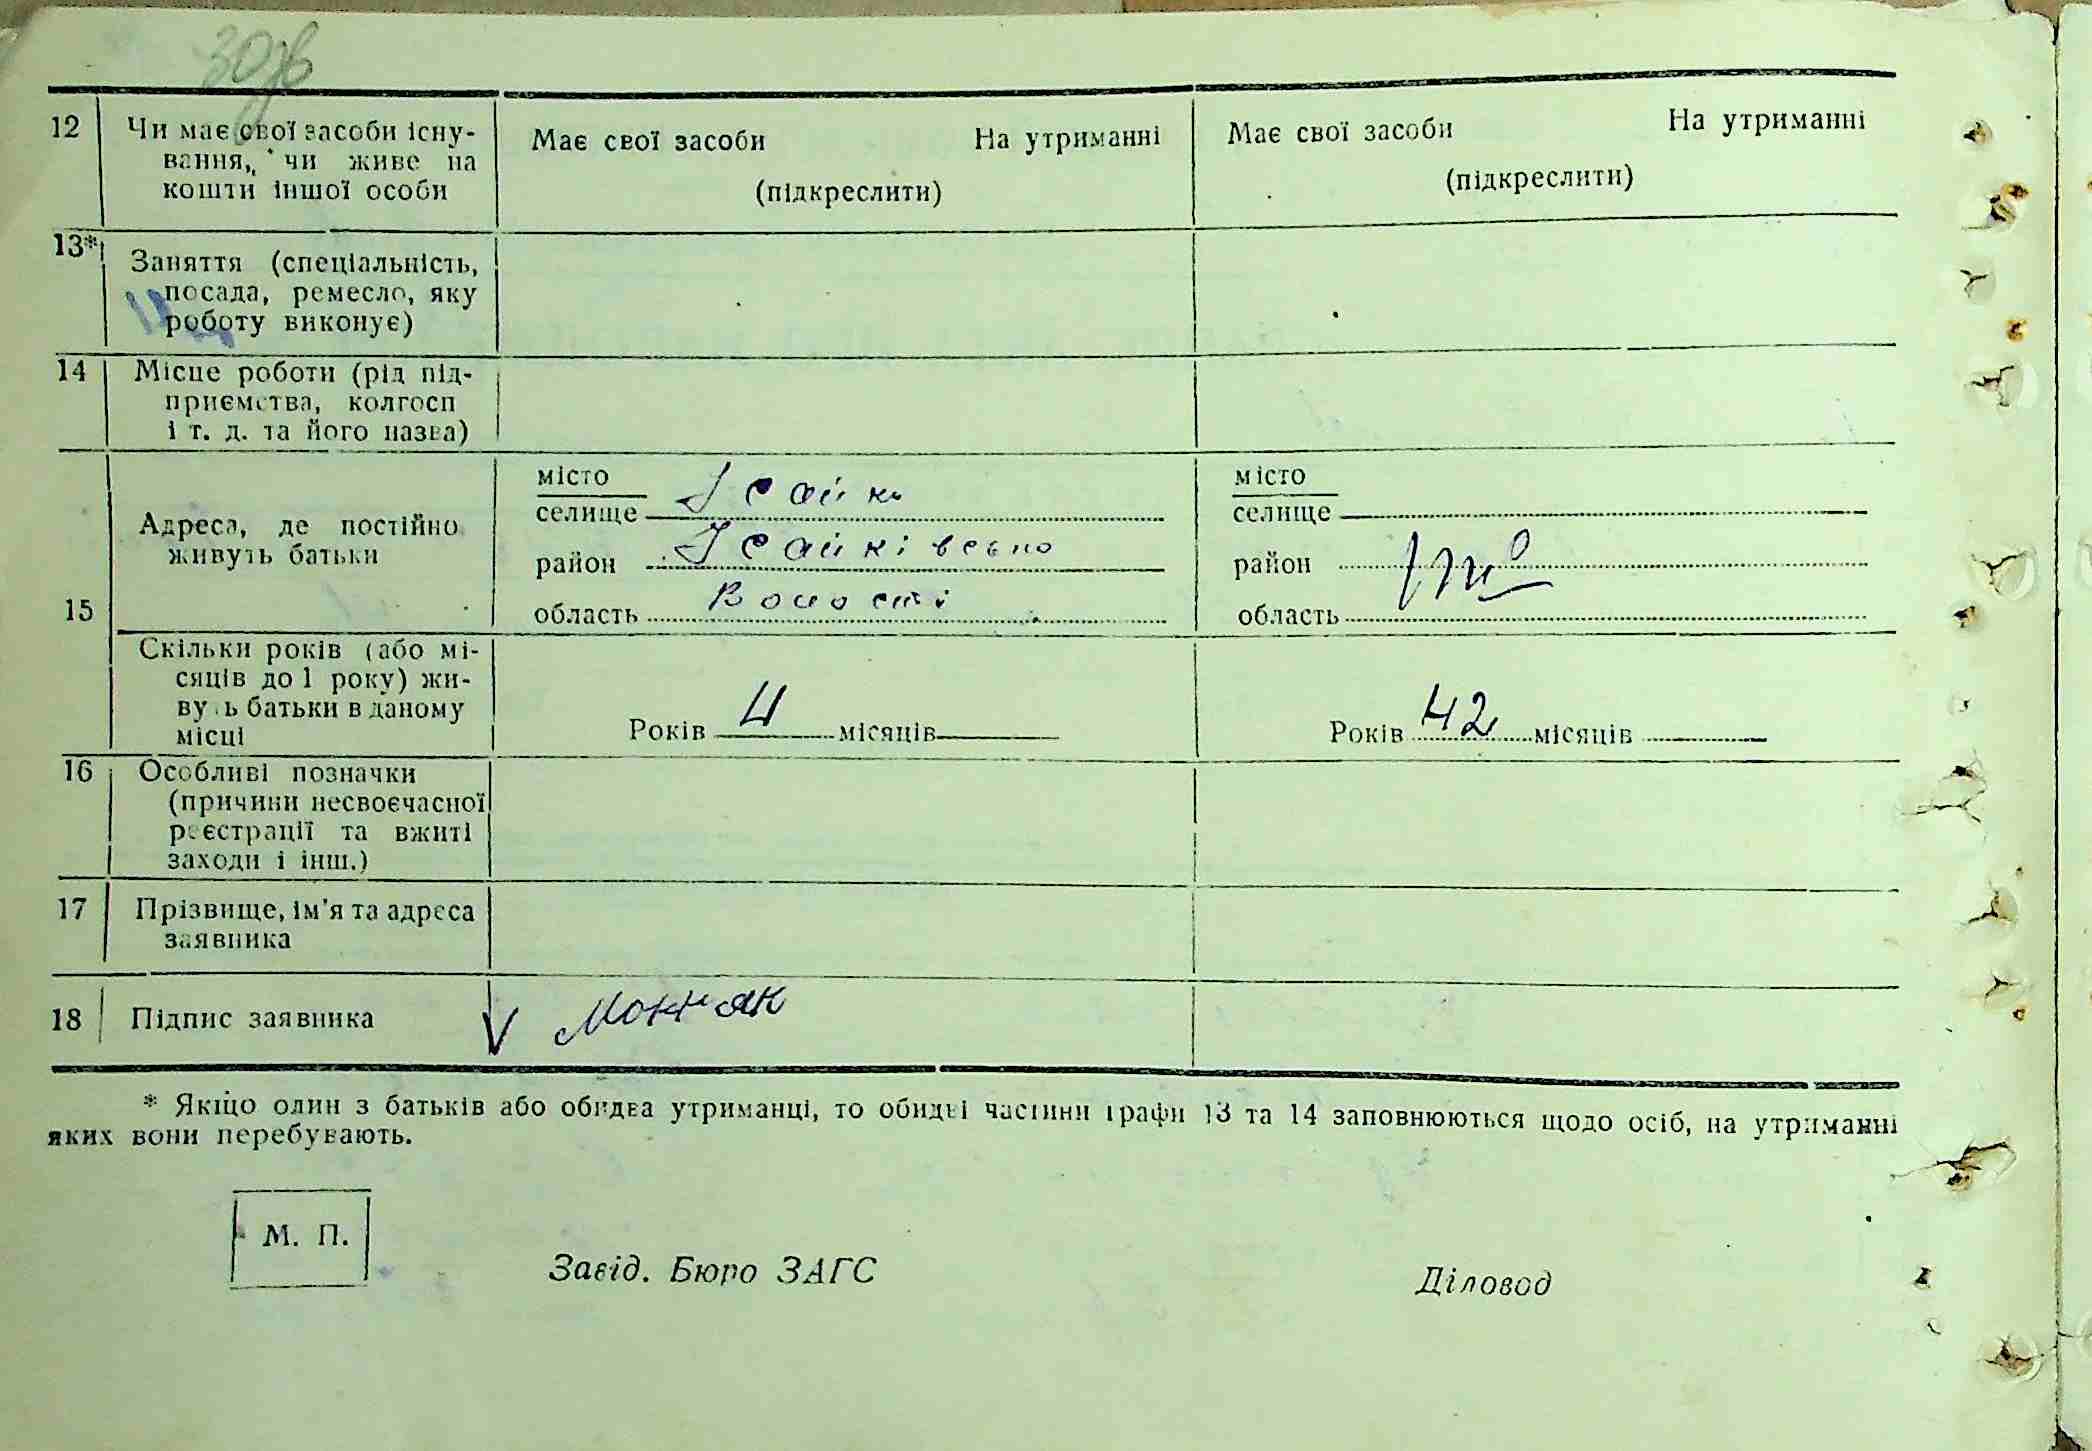 30зв
12 Чи має свої засоби існу-
вання, чи живе на
кошти іншої особи
Має свої засоби На утриманні
(підкреслити)
Має свої засоби На утриманні
(підкреслити)
13* Заняття (спеціальність,
посада, ремесло, яку
роботу виконує)
14 Місце роботи (рід під-
приємства, колгосп
і т. д. та його назва)
15
Адреса, де постійно
живуть батьки
місто
селище Ісайки
район Ісайківської
область Волості
місто
селище
район
область
Скільки років (або мі-
сяців до 1 року) жи-
вуть батьки в даному
місці
Років 4 місяців
Років 42 місяців
16 Особливі позначки
(причини несвоєчасної
реєстрації та вжиті
заходи і інш.)
17 Прізвище, ім'я та адреса
заявника
18 Підпис заявника
* Якщо один з батьків або обидва утриманці, то обидві частини графи 13 та 14 заповнюються щодо осіб, на утриманні
яких вони перебувають.
М. П.
Завід. Бюро ЗАГС
Діловод